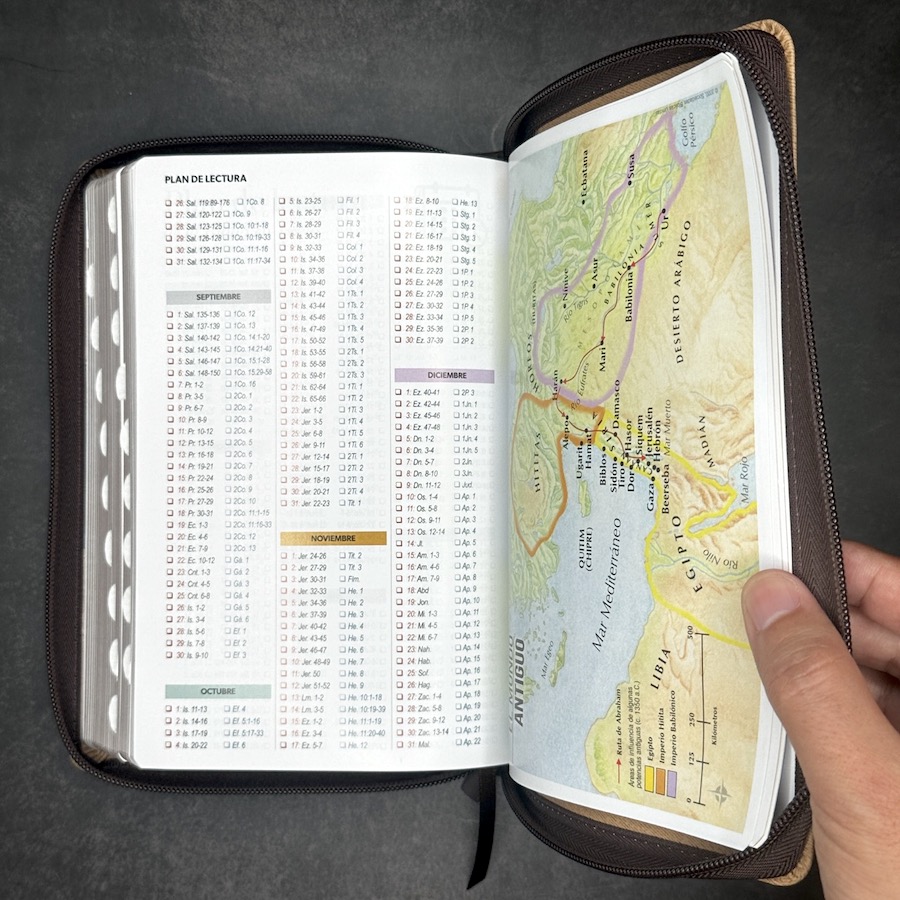 PLAN DE LECTURA
26: Sal. 119:89-176 1Co. 8
27: Sal. 120-122 1Co. 9
28: Sal. 123-125 1Co. 10:1-18
29: Sal. 126-128 1Co. 10:19-33
30: Sal. 129-131 1Co. 11:1-16
31: Sal. 132-134 1Co. 11:17-34
SEPTIEMBRE
1: Sal. 135-136 1Co. 12
2: Sal. 137-139 1Co. 13
3: Sal. 140-142 1Co. 14:1-20
4: Sal. 143-145 1Co. 14:21-40
5: Sal. 146-147 1Co. 15:1-28
6: Sal. 148-150 1Co. 15:29-58
7: Pr. 1-2 1Co. 16
8: Pr. 3-5 2Co. 1
9: Pr. 6-7 2Co. 2
10: Pr. 8-9 2Co. 3
11: Pr. 10-12 2Co. 4
12: Pr. 13-15 2Co. 5
13: Pr. 16-18 2Co. 6
14: Pr. 19-21 2Co. 7
15: Pr. 22-24 2Co. 8
16: Pr. 25-26 2Co. 9
17: Pr. 27-29 2Co. 10
18: Pr. 30-31 2Co. 11:1-15
19: Ec. 1-3 2Co. 11:16-33
20: Ec. 4-6 2Co. 12
21: Ec. 7-9 2Co. 13
22: Ec. 10-12 Gá. 1
23: Cnt. 1-3 Gá. 2
24: Cnt. 4-5 Gá. 3
25: Cnt. 6-8 Gá. 4
26: Is. 1-2 Gá. 5
27: Is. 3-4 Gá. 6
28: Is. 5-6 Ef. 1
29: Is. 7-8 Ef. 2
30: Is. 9-10 Ef. 3
OCTUBRE
1: Is. 11-13 Ef. 4
2: Is. 14-16 Ef. 5:1-16
3: Is. 17-19 Ef. 5:17-33
4: Is. 20-22 Ef. 6
5: Is. 23-25 Fil. 1
6: Is. 26-27 Fil. 2
7: Is. 28-29 Fil. 3
8: Is. 30-31 Fil. 4
9: Is. 32-33 Col. 1
10: Is. 34-36 Col. 2
11: Is. 37-38 Col. 3
12: Is. 39-40 Col. 4
13: Is. 41-42 1Ts. 1
14: Is. 43-44 1Ts. 2
15: Is. 45-46 1Ts. 3
16: Is. 47-49 1Ts. 4
17: Is. 50-52 1Ts. 5
18: Is. 53-55 2Ts. 1
19: Is. 56-58 2Ts. 2
20: Is. 59-61 2Ts. 3
21: Is. 62-64 1Ti. 1
22: Is. 65-66 1Ti. 2
23: Jer. 1-2 1Ti. 3
24: Jer. 3-5 1Ti. 4
25: Jer. 6-8 1Ti. 5
26: Jer. 9-11 1Ti. 6
27: Jer. 12-14 2Ti. 1
28: Jer. 15-17 2Ti. 2
29: Jer. 18-19 2Ti. 3
30: Jer. 20-21 2Ti. 4
31: Jer. 22-23 Tit. 1
NOVIEMBRE
1: Jer. 24-26 Tit. 2
2: Jer. 27-29 Tit. 3
3: Jer. 30-31 Flm.
4: Jer. 32-33 He. 1
5: Jer. 34-36 He. 2
6: Jer. 37-39 He. 3
7: Jer. 40-42 He. 4
8: Jer. 43-45 He. 5
9: Jer. 46-47 He. 6
10: Jer. 48-49 He. 7
11: Jer. 50 He. 8
12: Jer. 51-52 He. 9
13: Lm. 1-2 He. 10:1-18
14: Lm. 3-5 He. 10:19-39
15: Ez. 1-2 He. 11:1-19
16: Ez. 3-4 He. 11:20-40
17: Ez. 5-7 He. 12
18: Ez. 8-10 He. 13
19: Ez. 11-13 Stg. 1
20: Ez. 14-15 Stg. 2
21: Ez. 16-17 Stg. 3
22: Ez. 18-19 Stg. 4
23: Ez. 20-21 Stg. 5
24: Ez. 22-23 1P. 1
25: Ez. 24-26 1P. 2
26: Ez. 27-29 1P. 3
27: Ez. 30-32 1P. 4
28: Ez. 33-34 1P. 5
29: Ez. 35-36 2P. 1
30: Ez. 37-39 2P. 2
DICIEMBRE
1: Ez. 40-41 2P. 3
2: Ez. 42-44 1Jn. 1
3: Ez. 45-46 1Jn. 2
4: Ez. 47-48 1Jn. 3
5: Dn. 1-2 1Jn. 4
6: Dn. 3-4 1Jn. 5
7: Dn. 5-7 2Jn.
8: Dn. 8-10 3Jn.
9: Dn. 11-12 Jud.
10: Os. 1-4 Ap. 1
11: Os. 5-8 Ap. 2
12: Os. 9-11 Ap. 3
13: Os. 12-14 Ap. 4
14: Jl. Ap. 5
15: Am. 1-3 Ap. 6
16: Am. 4-6 Ap. 7
17: Am. 7-9 Ap. 8
18: Abd. Ap. 9
19: Jon. Ap. 10
20: Mi. 1-3 Ap. 11
21: Mi. 4-5 Ap. 12
22: Mi. 6-7 Ap. 13
23: Nah. Ap. 14
24: Hab. Ap. 15
25: Sof. Ap. 16
26: Hag. Ap. 17
27: Zac. 1-4 Ap. 18
28: Zac. 5-8 Ap. 19
29: Zac. 9-12 Ap. 20
30: Zac. 13-14 Ap. 21
31: Mal. Ap. 22
ANTIGUO
Golfo Pérsico
Ecbatana
Susa
Ur
SUMER
BABILONIA
Babilonia
Nínive
Asur
Río Tigris
Mari
Río Éufrates
Harán
HITITAS
DESIERTO ARÁBIGO
Alepo
Ugarit
Hamat
Damasco
Biblos
Sidón
Tiro
Hasor
Dor
Siquem
Jerusalén
Hebrón
Gaza
Beerseba
Mar Muerto
MADIÁN
Mar Rojo
EGIPTO
Río Nilo
QUITIM
(CHIPRE)
Mar Mediterráneo
Mar Egeo
LIBIA
Ruta de Abraham
Áreas de influencia de algunas
potencias antiguas (c. 1350 a.C.)
Egipto
Imperio Hitita
Imperio Babilónico
0 125 250 500
Kilómetros